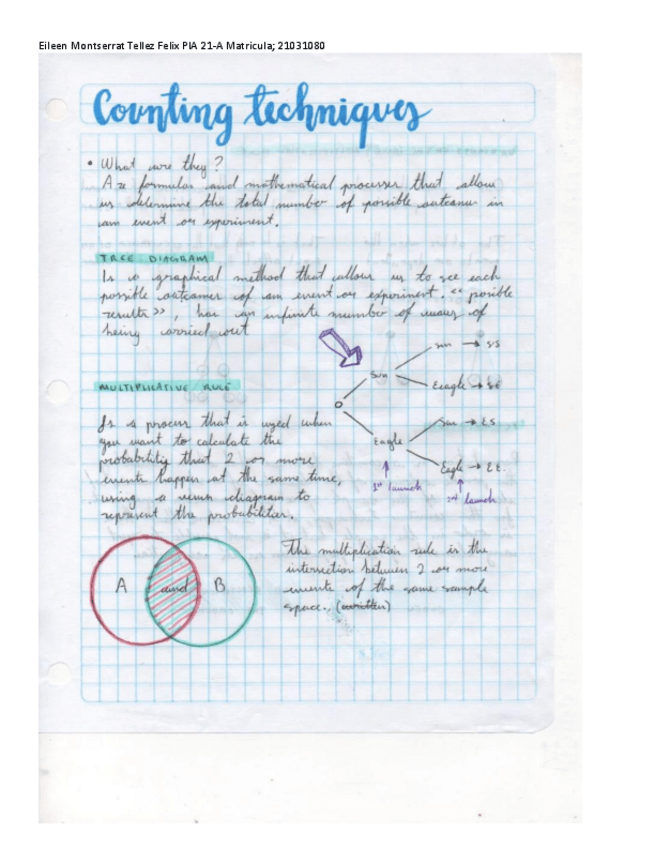 Eileen Montserrat Tellez Felix PIA 21-A Matricula; 21031080
Counting techniques
• What are they?
Are formulas and mathematical processes that allow
us determine the total number of possible outcomes in
an event or experiment.
TREE DIAGRAM
Is a graphical method that allows us to see each
possible outcomes of an event or experiment. "posible
results», has an infinite number of ways of
being carried out
sun → SS
Sun
Eeagle → SE
O
Eagle
Sun → ES
Eagle → EE.
1st launch
2nd launch
MULTIPLICATIVE RULE
Is a process that is used when
you want to calculate the
probability that 2 or more
events happen at the same time,
using a venn diagram to
represent the probabilities.
A and B
The multiplication rule is the
intersection between 2 or more
events of the same sample
space., (written)